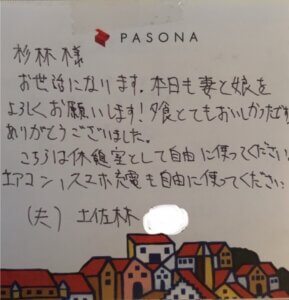 PASONA
杉林様
お世話になります。本日も妻と娘を
よろしくお願いします！夕食とてもおいしかったです
ありがとうございました。
こちらは休憩室として自由に使ってください
エアコン、スマホ充電も自由に使ってください
(夫) 土佐林